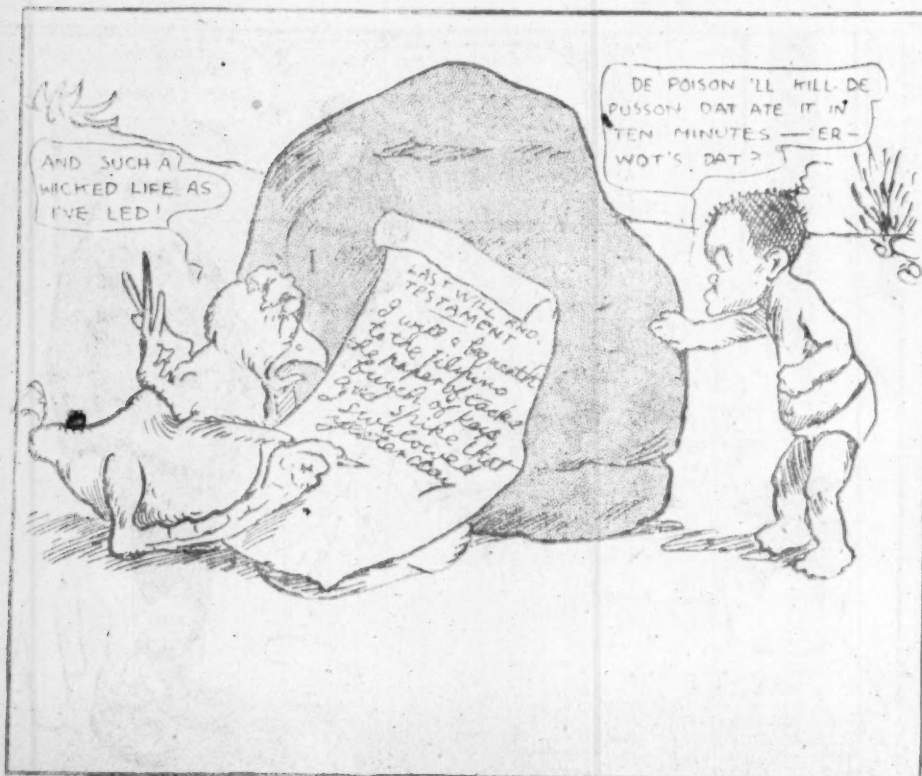 AND SUCH A
WICKED LIFE AS
I'VE LED!
DE POISON 'LL KILL DE
PUSSON DAT ATE IT IN
TEN MINUTES — ER —
WOT'S DAT?
LAST WILL AND
TESTAMENT
I will & bequeath
to the filipino
the paper of tacks
bunch of keys
and spike that
I swallowed
yesterday